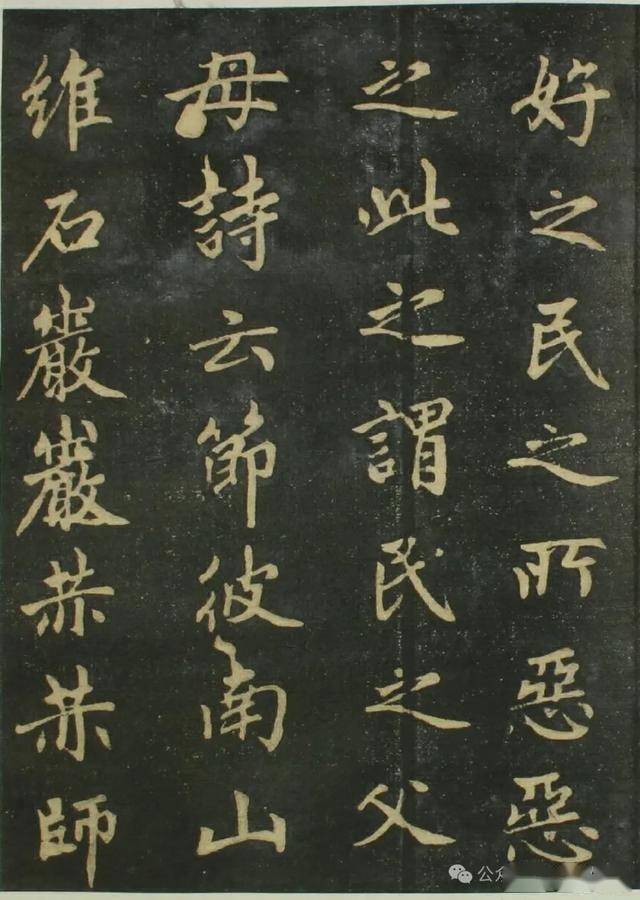 好之民之所惡惡
之此之謂民之父
母詩云節彼南山
維石巖巖赫赫師
公众